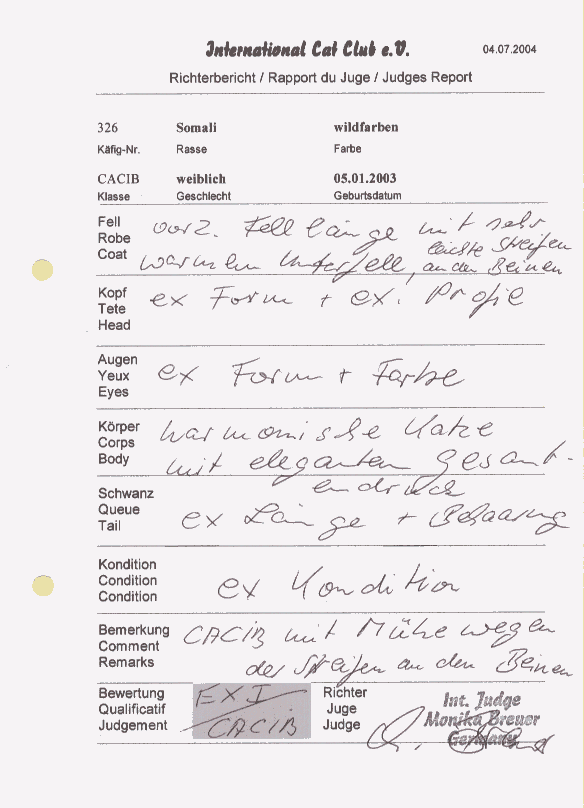 International Cat Club e.V. 04.07.2004
Richterbericht / Rapport du Juge / Judges Report
326 Somali wildfarben
Käfig-Nr. Rasse Farbe
CACIB weiblich 05.01.2003
Klasse Geschlecht Geburtsdatum
Fell
Robe
Coat
vorz. Fell länge mit sehr
warmem Unterfell, leichte Streifen
an den Beinen
Kopf
Tete
Head
ex Form + ex. Profie
Augen
Yeux
Eyes
ex Form + Farbe
Körper
Corps
Body
harmonische Katze
mit eleganten gesamt-
eindruck
Schwanz
Queue
Tail
ex Länge + Behaarung
Kondition
Condition
Condition
ex Kondition
Bemerkung
Comment
Remarks
CACIB mit Mühe wegen
der Streifen an den Beinen
Bewertung
Qualificatif
Judgement
EX I
CACIB
Richter
Juge
Judge
Int. Judge
Monika Breuer
Germany